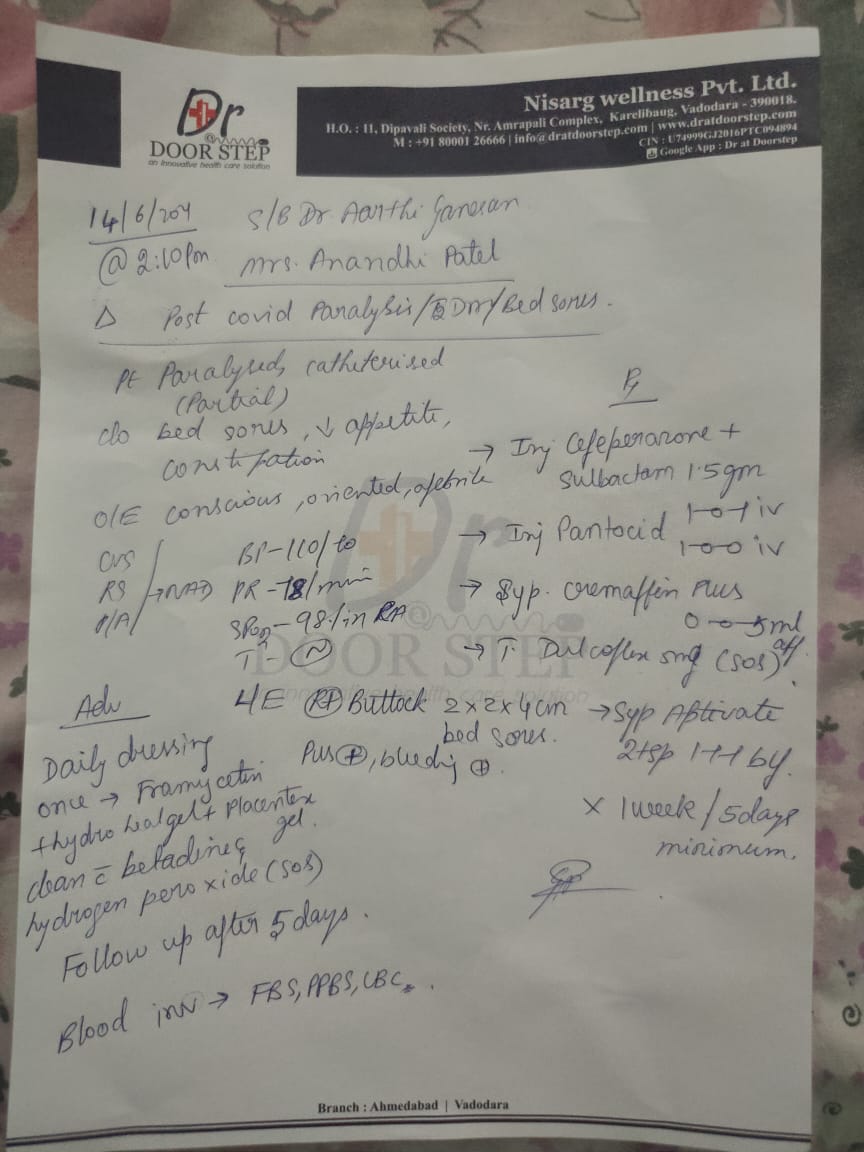 Dr
@
DOOR STEP
an innovative health care solution
Nisarg wellness Pvt. Ltd.
H.O. : 11, Dipavali Society, Nr. Amrapali Complex, Karelibaug, Vadodara - 390018.
M : +91 80001 26666 | info@dratdoorstep.com | www.dratdoorstep.com
CIN : U74999GJ2016PTC094894
Google App : Dr at Doorstep
14/6/ S/B Dr Aarthi
@ 2:10pm Mrs. Anandhi Patel
Δ Post covid Paralysis/ DM/Bed sores.
Pt Paralysed, catheterised
(Partial)
c/o bed sores, ↓ appetite,
constipation
O/E conscious, oriented, afebrile
CVS
RS → NAD
P/A
BP-110/70
PR-78/min
SPO2-98% in RA
T - N
L/E Rt Buttock 2x2x4cm
bed sores.
Pus +, bleeding +.
Rx
→ Inj Cefeperazone +
Sulbactam 1.5gm
1-0-1 iv
→ Inj Pantocid 1-0-0 iv
→ Syp. cremaffin Plus
0-0-5ml
→ T. Dulcoflex 5mg (SOS)
→ Syp Aptivate
2tsp 1-1-1
x 1 week / 5 days
minimum.
Adv
Daily dressing
once → Framycetin
+hydro healgel + Placentex
gel.
clean c̄ betadine &
hydrogen peroxide (SOS)
Follow up after 5 days.
Blood inv → FBS, PPBS, CBC.
Branch : Ahmedabad | Vadodara